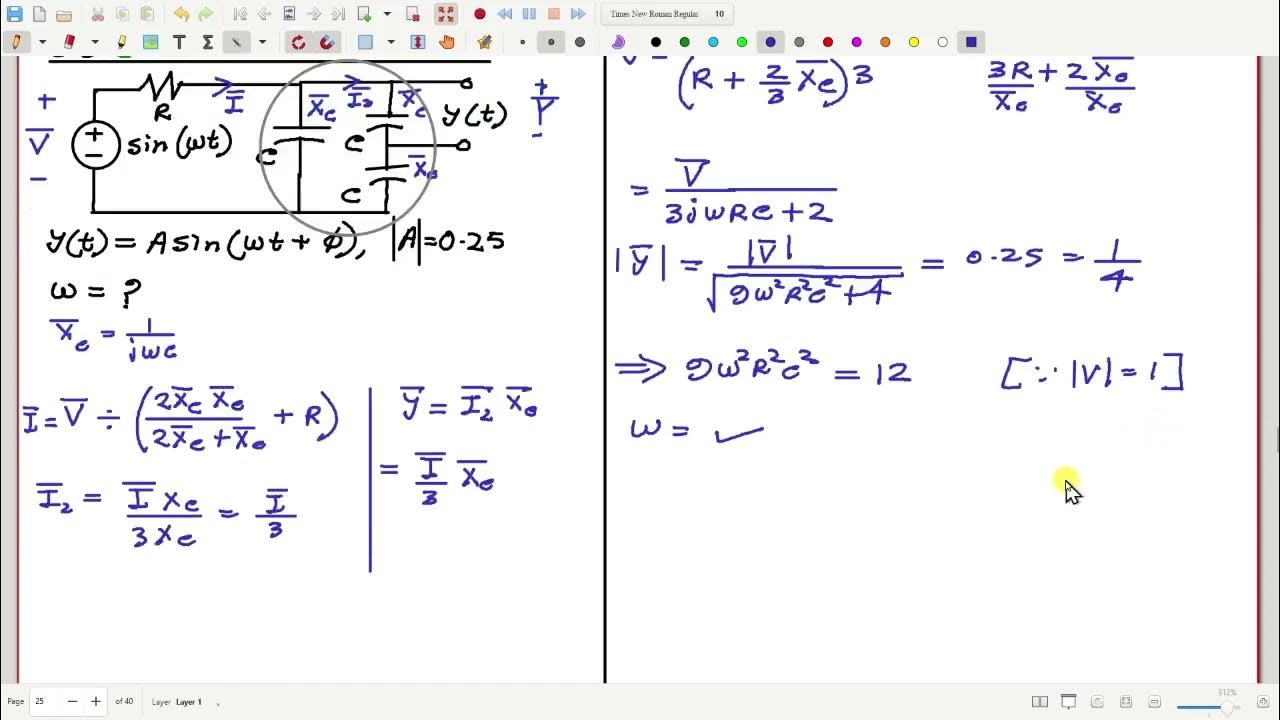 Times New Roman Regular 10
T Σ
+ V̅ −
R
I̅
X̅c
I̅₂
X̅c
+ Y̅ -
+ −
sin(ωt)
C
C
y(t)
X̅c
C
y(t) = A sin(ωt + φ), |A| = 0.25
ω = ?
X̅c = 1/jωc
I̅ = V̅ ÷ (2X̅c X̅c / 2X̅c + X̅c + R)
I̅₂ = I̅ Xc / 3Xc = I̅/3
Y̅ = I̅₂ X̅c
= I̅/3 X̅c
(R + 2/3 X̅c) 3
3R/X̅c + 2X̅c/X̅c
= V̅ / 3jωRc + 2
|Y̅| = |V̅| / √9ω²R²c² + 4 = 0.25 = 1/4
⇒ 9ω²R²c² = 12 [∵ |V| = 1]
ω = ✓
Page 25 of 40 Layer Layer 1
312%